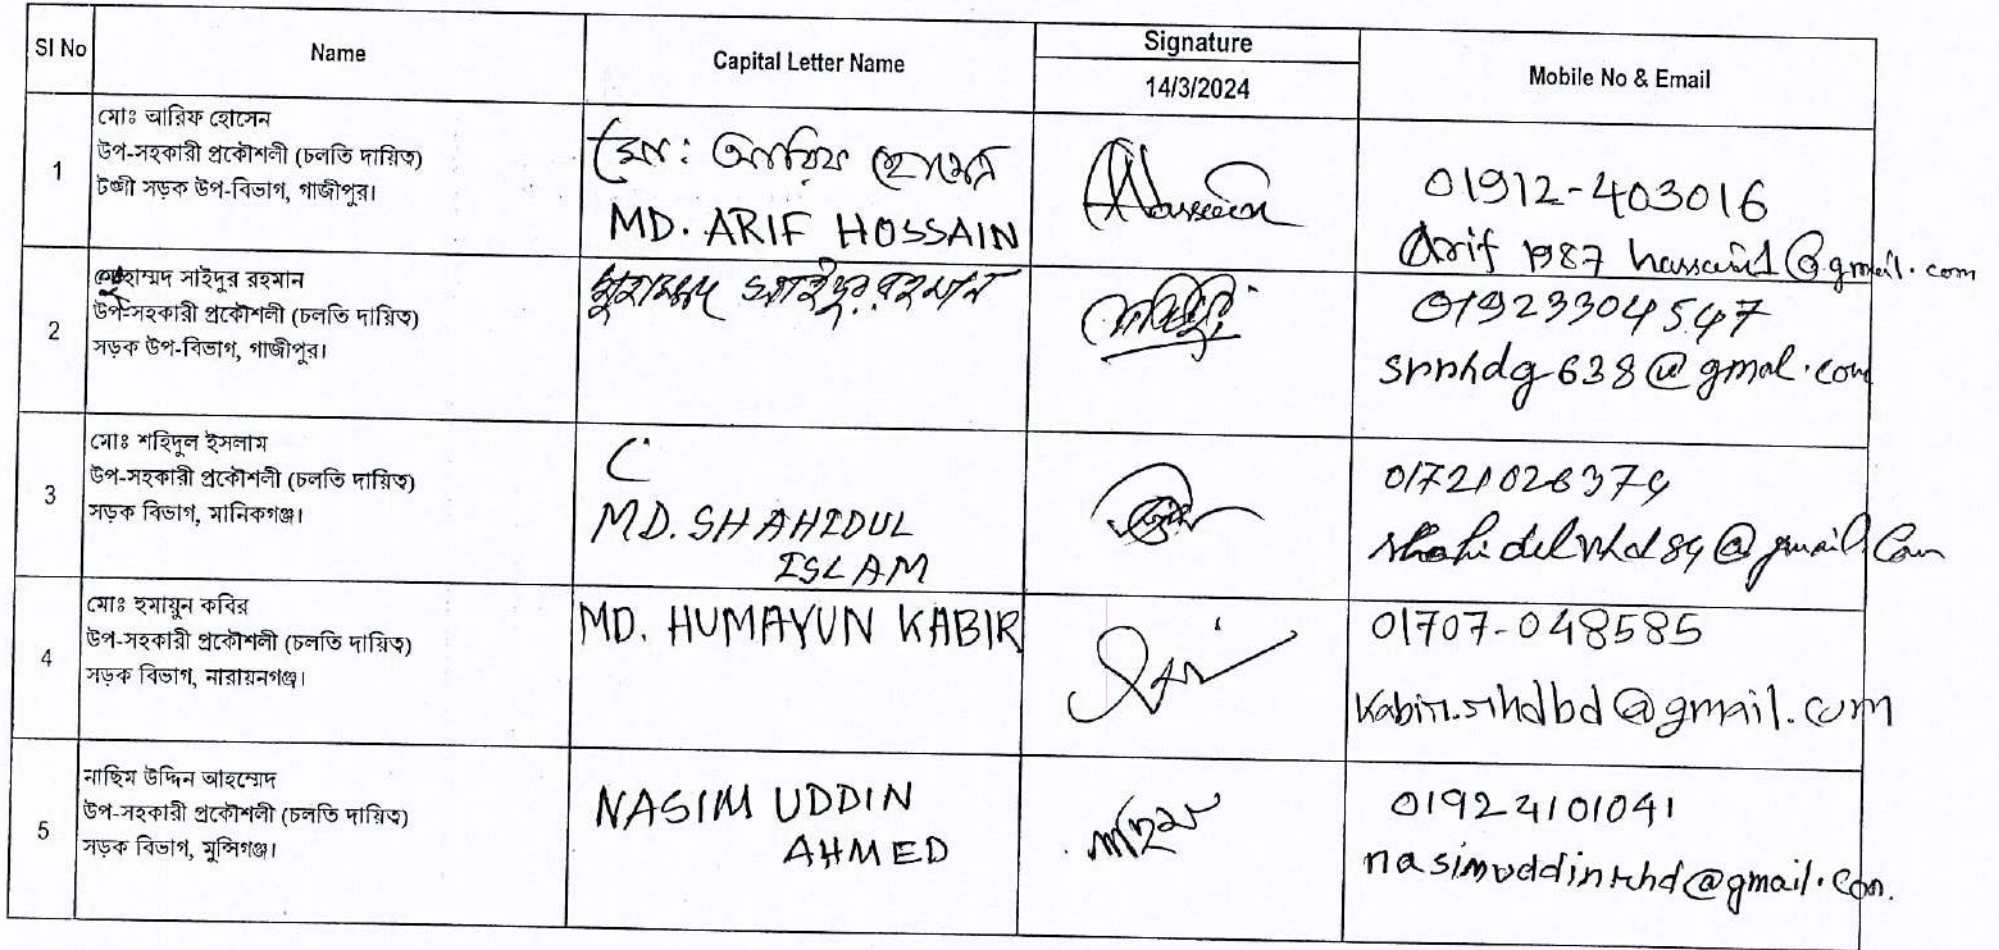 SI No
Name
Capital Letter Name
Signature
14/3/2024
Mobile No & Email
1
মোঃ আরিফ হোসেন
উপ-সহকারী প্রকৌশলী (চলতি দায়িত্ব)
টঙ্গী সড়ক উপ-বিভাগ, গাজীপুর।
মো: আরিফ হোসেন
MD. ARIF HOSSAIN
01912-403016
2
মুহাম্মদ সাইদুর রহমান
উপ-সহকারী প্রকৌশলী (চলতি দায়িত্ব)
সড়ক উপ-বিভাগ, গাজীপুর।
মুহাম্মদ সাইদুর রহমান
01923304547
3
মোঃ শহিদুল ইসলাম
উপ-সহকারী প্রকৌশলী (চলতি দায়িত্ব)
সড়ক বিভাগ, মানিকগঞ্জ।
MD. SHAHIDUL
ISLAM
4
মোঃ হুমায়ুন কবির
উপ-সহকারী প্রকৌশলী (চলতি দায়িত্ব)
সড়ক বিভাগ, নারায়নগঞ্জ।
MD. HUMAYUN KABIR
01707-048585
kabir.rhdbd@gmail.com
5
নাছিম উদ্দিন আহম্মেদ
উপ-সহকারী প্রকৌশলী (চলতি দায়িত্ব)
সড়ক বিভাগ, মুন্সিগঞ্জ।
NASIM UDDIN
AHMED
নাছিম
01924101041
nasimuddinrhd@gmail.com.